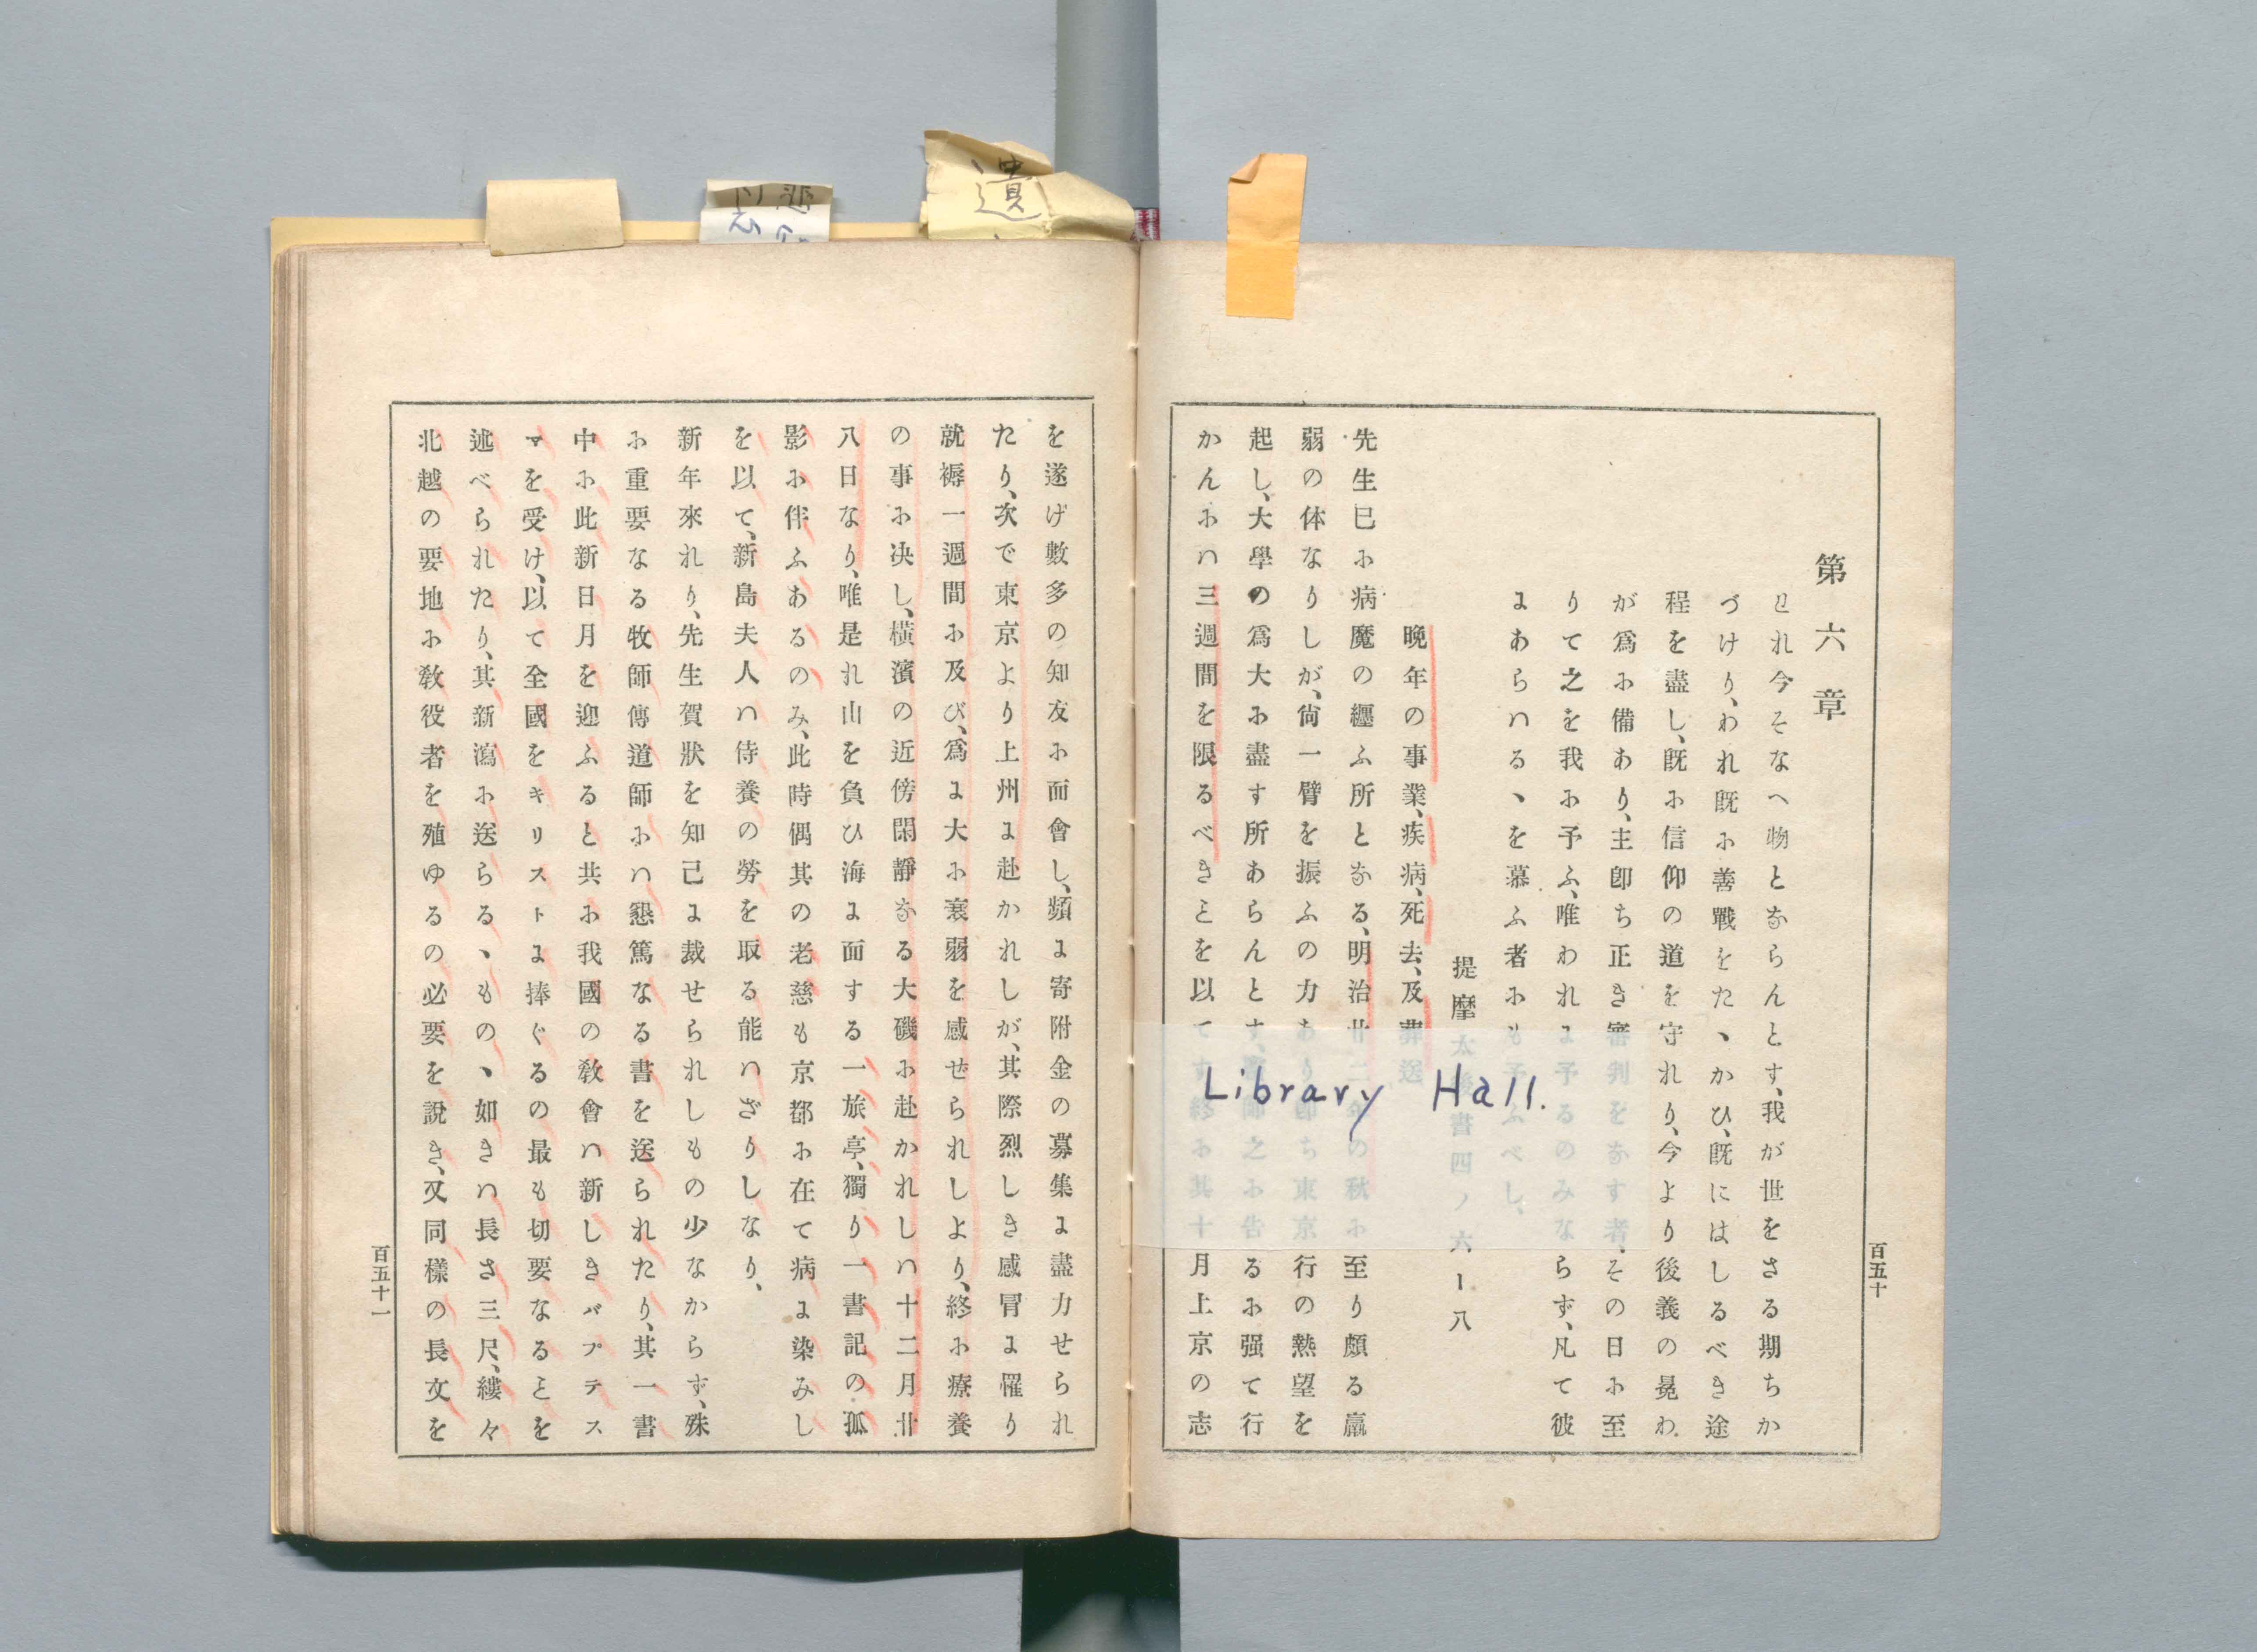 百五十
第六章
それ今そなへ物とならんとす、我が世をさる期ちか
づけり、われ既に善戰をたゝかひ、既にはしるべき途
程を盡し、既に信仰の道を守れり、今より後義の冕わ
が爲に備あり、主卽ち正き審判をなす者、その日に至
りて之を我に予ふ、唯われに予るのみならず、凡て彼
にあらハるゝを慕ふ者にも予ふべし、
提摩太後書四ノ六ー八
晩年の事業、疾病、死去、及葬送
先生已に病魔の纒ふ所となる、明治廿二年の秋に至り頗る羸
弱の体なりしが、尙一臂を振ふの力あり卽ち東京行の熱望を
起し、大學の爲大に盡す所あらんとす、醫師之に告るに强て行
かんにハ三週間を限るべきことを以てす終に其十月上京の志
Library Hall.
を遂げ數多の知友に面會し、頻に寄附金の募集に盡力せられ
たり、次で東京より上州に赴かれしが、其際烈しき感冒に罹り
就褥一週間に及び、爲に大に衰弱を感せられしより、終に療養
の事に决し、橫濱の近傍閑靜なる大磯に赴かれしハ十二月廿
八日なり、唯是れ山を負ひ海に面する一旅亭、獨り一書記の孤
影に伴ふあるのみ、此時偶其の老慈も京都に在て病に染みし
を以て、新島夫人ハ侍養の勞を取る能ハざりしなり、
新年來れり、先生賀狀を知己に裁せられしもの少なからず、殊
に重要なる牧師傳道師にハ懇篤なる書を送られたり、其一書
中に此新日月を迎ふると共に我國の敎會ハ新しきバプテス
マを受け、以て全國をキリストに捧ぐるの最も切要なることを
述べられたり、其新瀉に送らるゝものゝ如きハ長さ三尺、縷々
北越の要地に敎役者を殖ゆるの必要を說き、又同樣の長文を
百五十一
遺